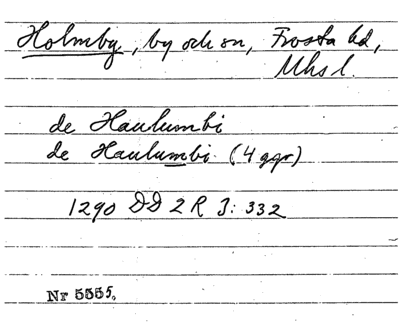 Holmby, by och sn, Frosta hd,
Mhs l.
de Haulumbi
de Haulumbi (4 ggr)
1290 DD 2 R I: 332
Nr 5555.